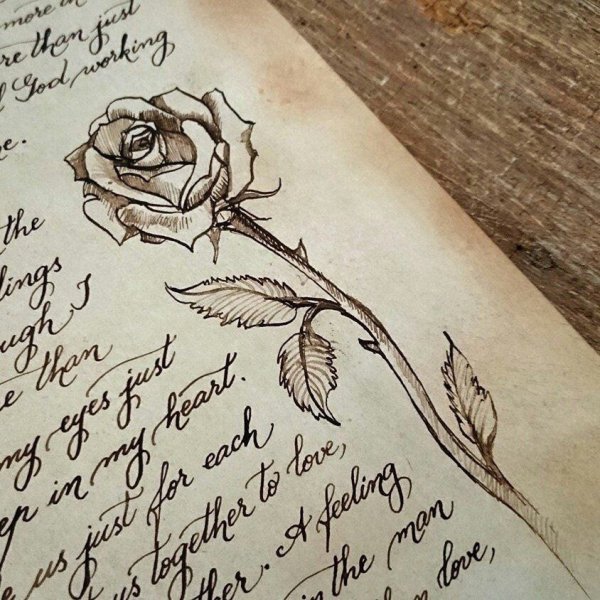 more in
than just
God working
the
than
my eyes just
in my heart.
us just for each
us together to love,
A feeling
in the man
love,